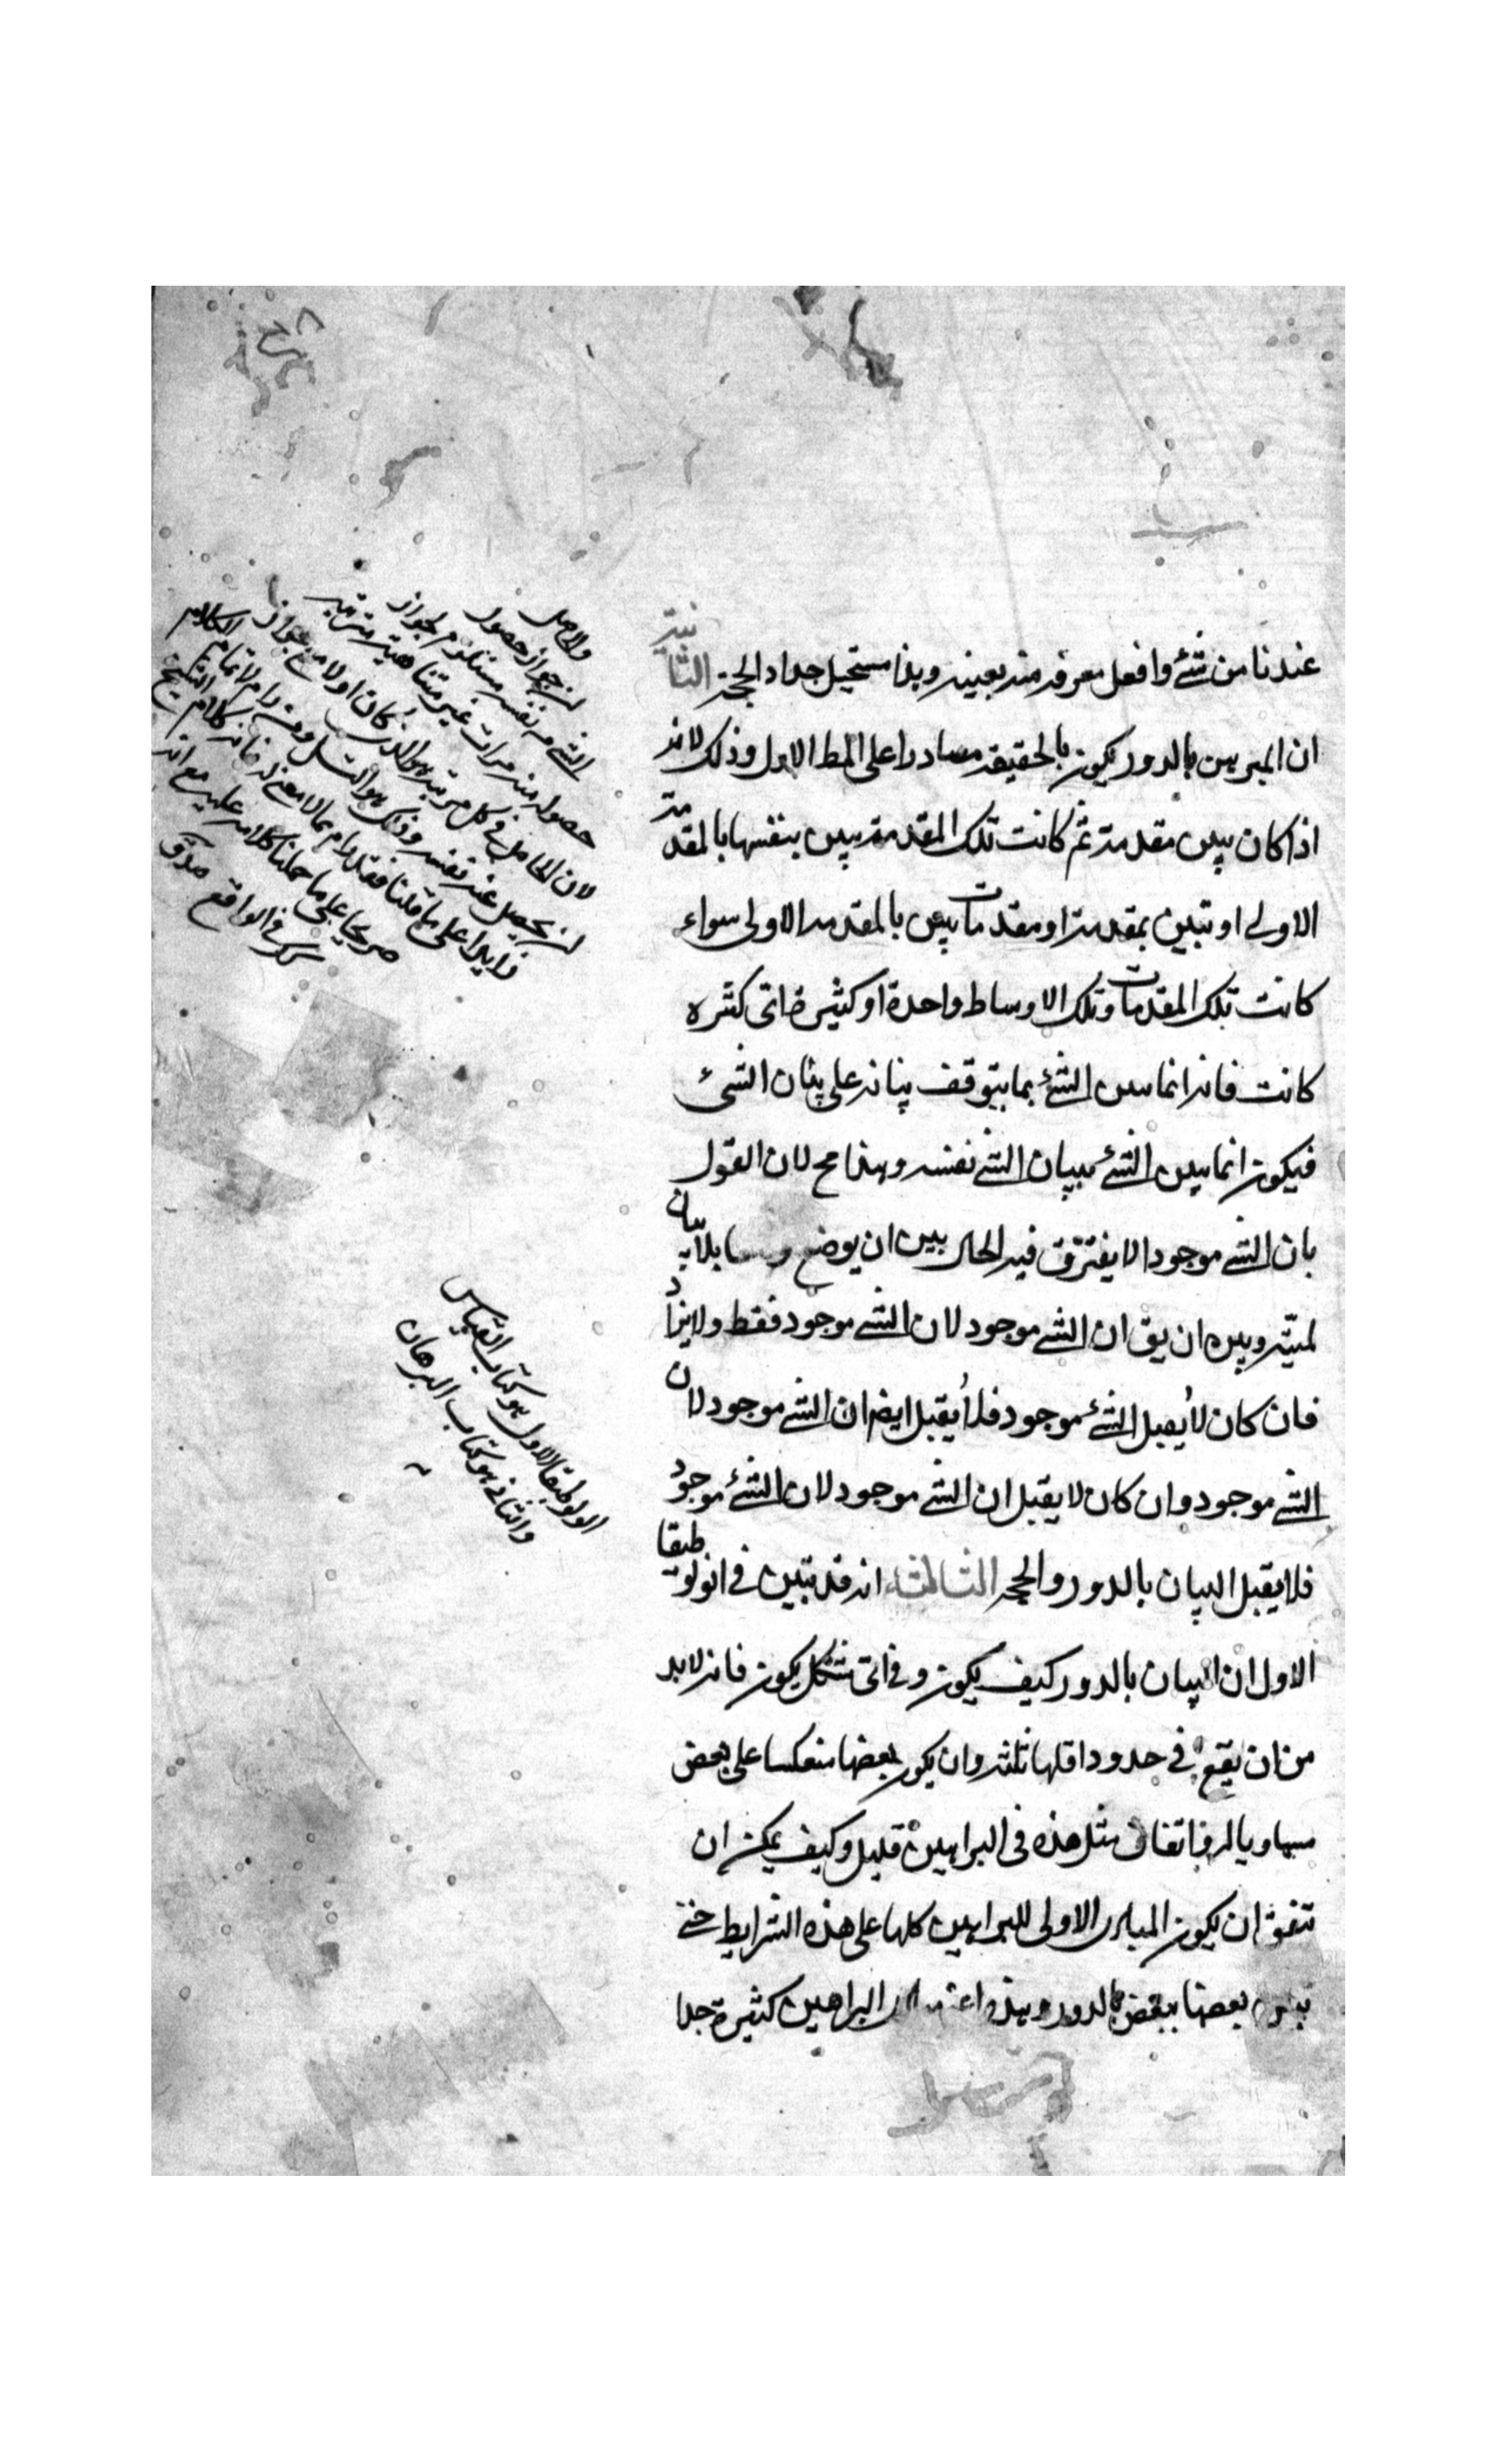 عندنا من شئ وافعل معرفه منه بعينه وهذا مستحيل جدا والحجة الثانية
ان المبرهن بالدور يكون بالحقيقه مصادرا على المط الاول وذلك لانه
اذا كان يبين مقدمة ثم كانت تلك المقدمة يبين بنفسها بالمقدمة
الاولى او تبين بمقدمة او مقدمات يبين بالمقدمه الاولى سواء
كانت تلك المقدمات وتلك الاوساط واحدة او كثيرة فاتى كثره
كانت فانه انما يبين الشئ بما يتوقف بيانه على بيان الشئ
فيكون انما يبين الشئ ببيان الشئ نفسه وهذا مح لان القول
بان الشئ موجود الا يفترق فيه الحال بين ان يوضع بلا بيان
لميّته وبين ان يق ان الشئ موجود لان الشئ موجود فقط ولا يزاد
فان كان لا يقبل الشئ موجود فلا يقبل ايضا ان الشئ موجود لان
الشئ موجود وان كان لا يقبل ان الشئ موجود لان الشئ موجود
فلا يقبل البيان بالدور والحجه الثالثه انه قد تبين فى انولوطيقا
الاول ان البيان بالدور كيف يكون وفى اى شكل يكون فانه لابد
من ان يقع فى حدود اقلها ثلثه وان يكون بعضها منعكسا على بعض
مساويا له فاتفاق مثل هذه فى البراهين قليل وكيف يمكن ان
تتفق ان يكون المبادى الاولى للبراهين كلها على هذه الشرايط حتى
بعضها ببعض بالدور وهذه البراهين كثيرة جدا
والحاصل
ان جواز حصول
الشئ من نفسه مستلزم لجواز
حصوله منه مرات غير متناهية مترتبة
لان الحاصل فى كل مرتبة هو الذى كان اولا مع جواز
ان يحصل عنه نفسه وذلك هو التسلسل
فايدا على ما قلنا فقد رام مالا معنى له فانه كلام الشيخ
صريحا على ما حملنا كلامه عليه مع انه
كذلك فى الواقع مدقق
الولوطيقا الاول هو كتاب القياس
والثانى هو كتاب البرهان